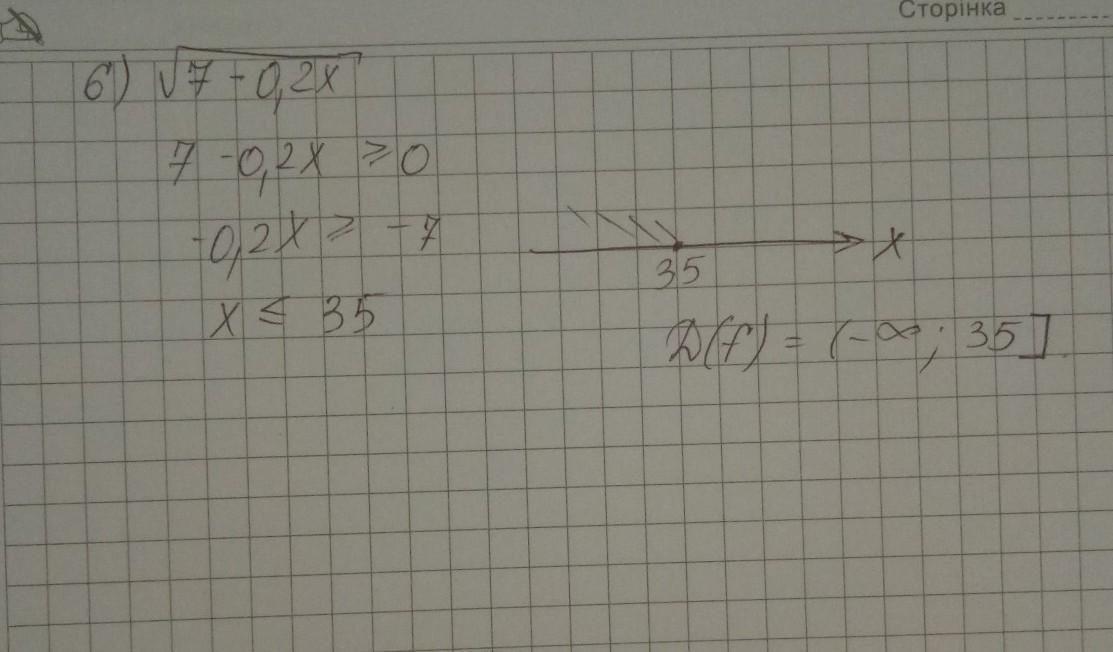 Сторінка
б) √7 - 0,2x
7 - 0,2x ≥ 0
-0,2x ≥ -7
x ≤ 35
35
x
D(f) = (-∞; 35]